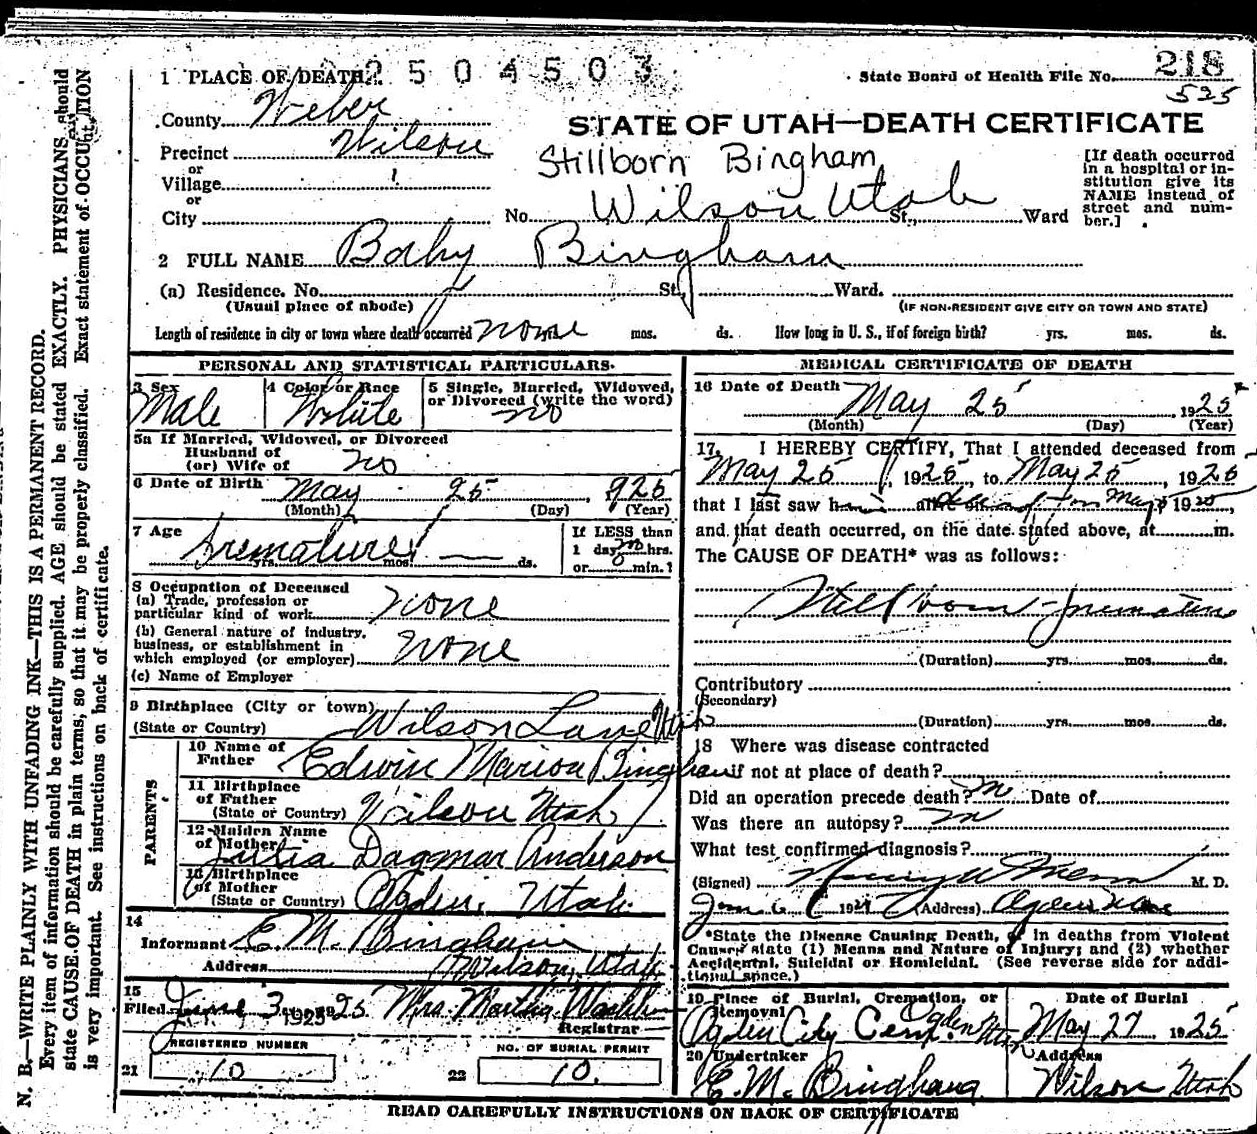 1 PLACE OF DEATH 2504503
State Board of Health File No. 218
525
County Weber
STATE OF UTAH—DEATH CERTIFICATE
Precinct Wilson
Stillborn Bingham
or
Village
or
City
No. Wilson Utah St., Ward
[If death occurred
in a hospital or in-
stitution give its
NAME instead of
street and num-
ber.]
2 FULL NAME Baby Bingham
(a) Residence. No. St., Ward.
(Usual place of abode)
(IF NON-RESIDENT GIVE CITY OR TOWN AND STATE)
Length of residence in city or town where death occurred none yrs. mos. ds. How long in U. S., if of foreign birth? yrs. mos. ds.
PERSONAL AND STATISTICAL PARTICULARS.
3 Sex Male
4 Color or Race White
5 Single, Married, Widowed,
or Divorced (write the word)
no
5a If Married, Widowed, or Divorced
Husband of
(or) Wife of no
6 Date of Birth May 25, 1925
(Month) (Day) (Year)
7 Age Premature
yrs. mos. ds.
If LESS than
1 day hrs.
or min.?
8 Occupation of Deceased
(a) Trade, profession or
particular kind of work none
(b) General nature of industry,
business, or establishment in
which employed (or employer) none
(c) Name of Employer
9 Birthplace (City or town)
(State or Country) Wilson Lane Utah
PARENTS
10 Name of
Father Edwin Marion Bingham
11 Birthplace
of Father
(State or Country) Wilson Utah
12 Maiden Name
of Mother Dagmar Anderson
13 Birthplace
of Mother
(State or Country) Ogden, Utah
14
Informant E. M. Bingham
Address Wilson, Utah
15
Filed June 3 1925 25 Mrs. Martha
Registrar
REGISTERED NUMBER
21 10
NO. OF BURIAL PERMIT
22 10.
MEDICAL CERTIFICATE OF DEATH
16 Date of Death May 25, 1925
(Month) (Day) (Year)
17. I HEREBY CERTIFY, That I attended deceased from
May 25, 1925, to May 25, 1925
that I last saw him alive on May 1925,
and that death occurred, on the date stated above, at m.
The CAUSE OF DEATH* was as follows:
Stillborn - premature
(Duration) yrs. mos. ds.
Contributory
(Secondary)
(Duration) yrs. mos. ds.
18 Where was disease contracted
if not at place of death?
Did an operation precede death? no Date of
Was there an autopsy? no
What test confirmed diagnosis?
(Signed) M. D.
192 (Address) Ogden
*State the Disease Causing Death, or in deaths from Violent
Causes state (1) Means and Nature of Injury; and (2) whether
Accidental, Suicidal or Homicidal. (See reverse side for addi-
tional space.)
19 Place of Burial, Cremation, or
Removal
Ogden City Cem. Ogden Utah
Date of Burial
May 27 1925
20 Undertaker
E. M. Bingham
Address
Wilson Utah
READ CAREFULLY INSTRUCTIONS ON BACK OF CERTIFICATE
N. B.—WRITE PLAINLY WITH UNFADING INK—THIS IS A PERMANENT RECORD.
Every item of information should be carefully supplied. AGE should be stated EXACTLY. PHYSICIANS should
state CAUSE OF DEATH in plain terms, so that it may be properly classified. Exact statement of OCCUPATION
is very important. See instructions on back of certificate.